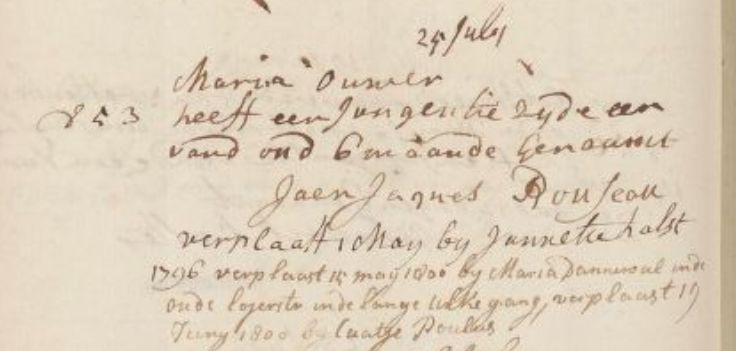 25 July
Maria Ouwer
853 heeft een Jungentie zijde een
vand oud 6 maande Genaamt
Jaen Jaques Rouseau
verplaast 1 May by Jannetie halst
1796 verplaast 15 may 1800 by Maria Dannewal inde
oude lojerstr inde lange gang, verplaast 11
Juny 1800 by Caatje Poulus